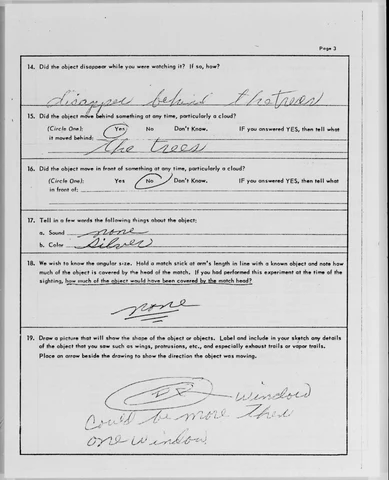 Page 3
14. Did the object disappear while you were watching it? If so, how?
disappee behind thetrees
15. Did the object move behind something at any time, particularly a cloud?
(Circle One): Yes No Don't Know. IF you answered YES, then tell what
it moved behind: the trees
16. Did the object move in front of something at any time, particularly a cloud?
(Circle One): Yes No Don't Know. IF you answered YES, then tell what
in front of:
17. Tell in a few words the following things about the object:
a. Sound none
b. Color silver
18. We wish to know the angular size. Hold a match stick at arm's length in line with a known object and note how
much of the object is covered by the head of the match. If you had performed this experiment at the time of the
sighting, how much of the object would have been covered by the match head?
none
19. Draw a picture that will show the shape of the object or objects. Label and include in your sketch any details
of the object that you saw such as wings, protrusions, etc., and especially exhaust trails or vapor trails.
Place an arrow beside the drawing to show the direction the object was moving.
window
could be more then
one window